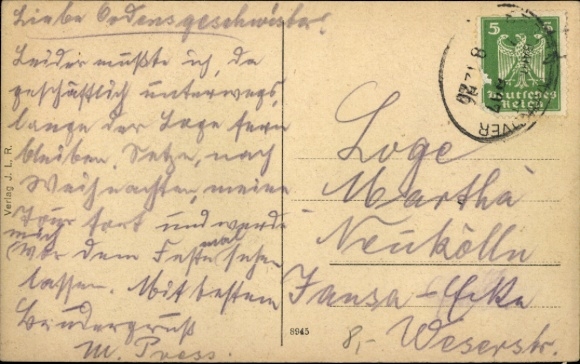 Liebe Ordensgeschwister!
Leider mußte ich, da
geschäftlich unterwegs,
lange der Loge fern
bleiben. Setze, nach
Weihnachten, meine
Tour fort und werde
mich vor dem Feste mal sehen
lassen. Mit bestem
Brudergruß
M. Press.
Verlag J. L. R.
8945
5
Deutsches
Reich
Loge
Martha
Neukölln
Jansa-Ecke
8,- Weserstr.